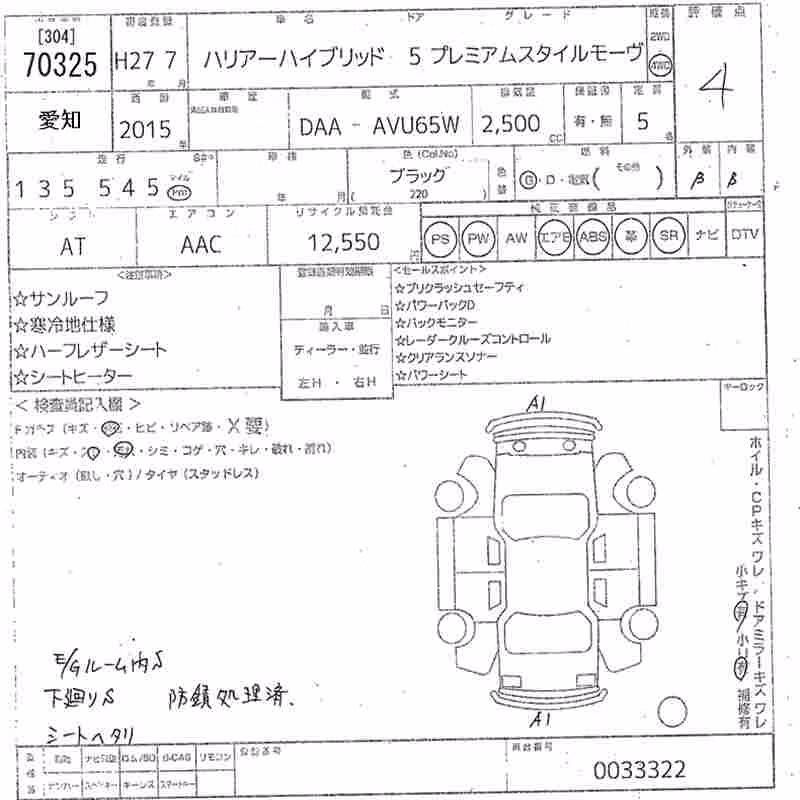 [304]
70325
初度登録
H27 7
年 月
車 名 ドア グレード
ハリアーハイブリッド 5 プレミアムスタイルモーヴ
2WD
4WD
評 価 点
4
愛知
2015
年
型 式
DAA - AVU65W
排気量
2,500
CC
有・無
定 員
5
名
走 行
135 545
マイル
Km
車 検
年 月
色 (Col.No)
ブラック
( 220 )
燃 料
G・D・電気( その他 )
外 装 内 装
β β
シフト
AT
エアコン
AAC
リサイクル預託金
12,550
円
純 正 装 備 品
PS PW AW エアB ABS 革 SR ナビ DTV
<注意事項>
☆サンルーフ
☆寒冷地仕様
☆ハーフレザーシート
☆シートヒーター
月 日
輸入車
ディーラー・並行
左H ・ 右H
<セールスポイント>
☆プリクラッシュセーフティ
☆パワーバックD
☆バックモニター
☆レーダークルーズコントロール
☆クリアランスソナー
☆パワーシート
キーロック
< 検査員記入欄 >
・ヒビ・リペア跡・X要)
・シミ・コゲ・穴・キレ・破れ・割れ)
オーディオ (無し・穴) / タイヤ (スタッドレス)
A1
A1
ホイル・CPキズワレ ドアミラーキズワレ
補修有
E/Gルーム内S
下廻りS 防錆処理済.
シートヘタリ
車台番号
0033322